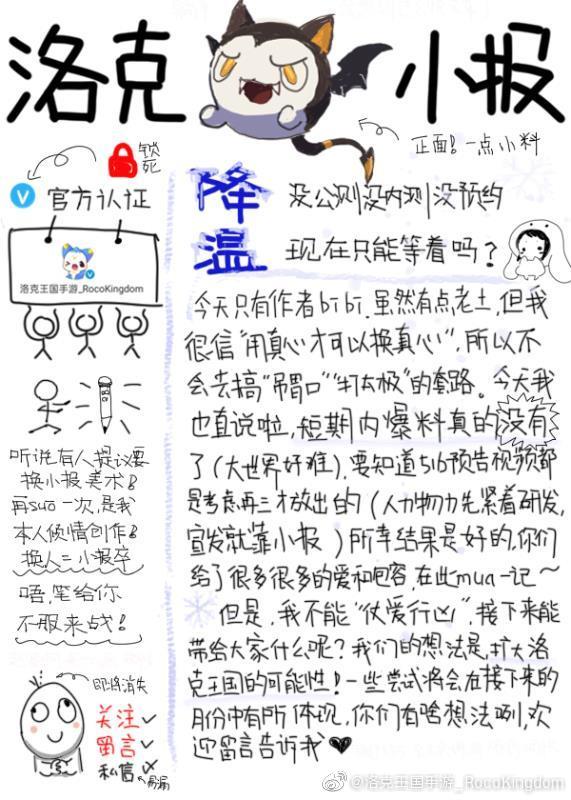 洛克小报
正面!一点小料
锁死
官方认证
洛克王国手游_RocoKingdom
听说有人提议要
换小报美术!
再suo一次,是我
本人倾情创作!
换人=小报卒
唔,笔给你
不服来战!
即将消失
关注✓
留言✓
私信✗
降温
没公测没内测没预约
现在只能等着吗?
今天只有作者bibi.虽然有点老土,但我
很信“用真心才可以换真心”,所以不
会去搞“吊胃口”“打太极”的套路。今天我
也直说啦,短期内爆料真的没有
了(大世界好难),要知道516预告视频都
是考虑再三才放出的(人力物力先紧着研发,
宣发就靠小报)所幸结果是好的,你们
给了很多很多的爱和包容,在此mua一记~
但是,我不能“仗爱行凶”,接下来能
带给大家什么呢?我们的想法是,扩大洛
克王国的可能性!一些尝试将会在接下来的
月份中有所体现,你们有啥想法咧,欢
迎留言告诉我♥
@洛克王国手游_RocoKingdom